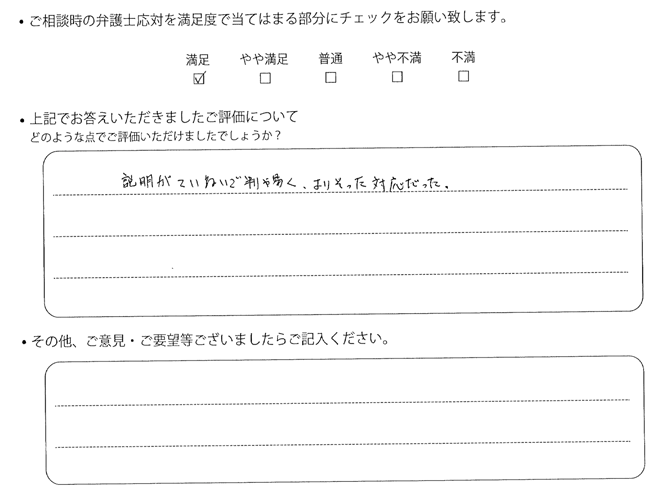 ・ご相談時の弁護士応対を満足度で当てはまる部分にチェックをお願い致します。
満足 やや満足 普通 やや不満 不満
☑ ☐ ☐ ☐ ☐
・上記でお答えいただきましたご評価について
どのような点でご評価いただけましたでしょうか？
説明がていねいで判り易く、よりそった対応だった。
・その他、ご意見・ご要望等ございましたらご記入ください。